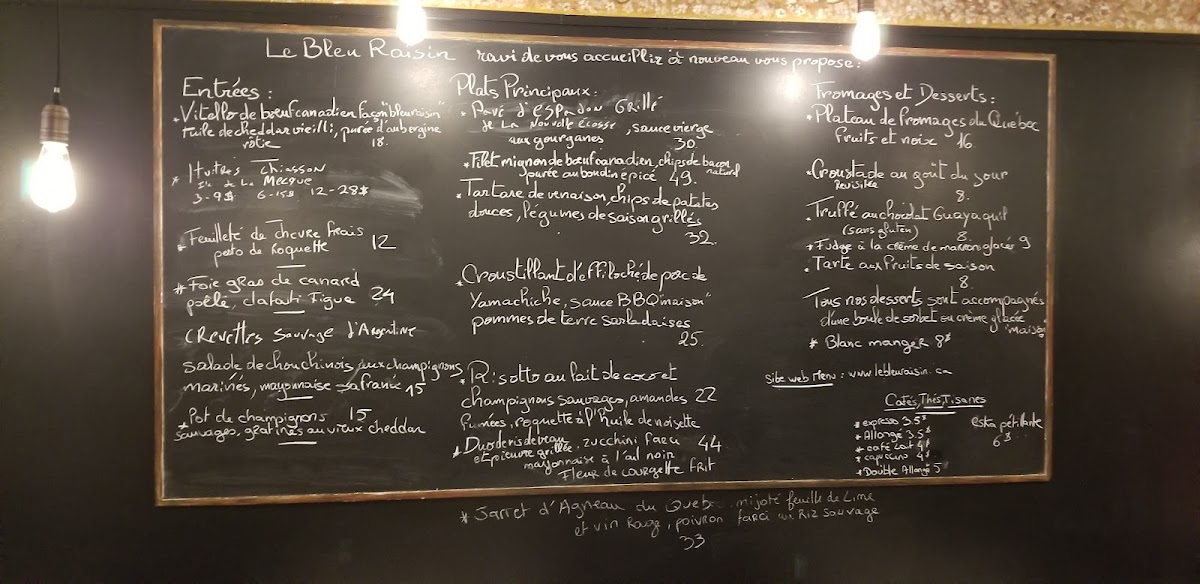 Le Bleu Raisin ravi de vous accueillir à nouveau vous propose :
Entrées :
*Vitello de bœuf canadien façon "bleu raisin"
tuile de cheddar vieilli, purée d'aubergine
rôtie 18.
* Huîtres Chiasson
Île de La Mecque
3-9$ 6-15$ 12-28$
* Feuilleté de chèvre frais
pesto de Roquette 12
* Foie gras de canard
poêlé, clafouti Figue 24
Crevettes sauvage d'Argentine
salade de chou chinois aux champignons
marinés, mayonnaise safranée 15
* Pot de champignons 15
sauvages, gratinés au vieux cheddar
Plats Principaux :
* Pavé d'espadon Grillé
de La Nouvelle écosse, sauce vierge
aux gourganes 30
*Filet mignon de bœuf canadien, chips de bacon
naturel
purée au boudin épicé 49.
*Tartare de venaison, chips de patates
douces, légumes de saison grillés
32.
Croustillant d'effiloché de porc de
Yamachiche, sauce BBQ "maison"
pommes de terre sarladaises
25.
* Risotto au lait de coco et
champignons sauvages, amandes 22
fumées, roquette à l'huile de noisette
* Duo de ris de veau, zucchini farci 44
et pieuvre grillée
mayonnaise à l'ail noir
Fleur de courgette frit
* Jarret d'Agneau du Quebec, mijoté feuille de Lime
et vin Rouge, poivron farci au Riz sauvage
33
Fromages et Desserts :
* Plateau de fromages du Québec
fruits et noix 16.
Croustade au goût du jour
Revisitée 8.
. Truffé au chocolat Guayaquil
(sans gluten) 8.
* Fudge à la crème de marron glacér 9
. Tarte aux fruits de saison
8.
Tous nos desserts sont accompagnés
d'une boule de sorbet ou crème glacée
"maison"
* Blanc manger 8$
Site web Menu : www.lebleuraisin.ca
Cafés, Thés, Tisanes
* expresso 3.5$
* Allongé 3.5$
* café Lait 4$
* capuccino 4$
* Double Allongé 5
eska pétillante
6$